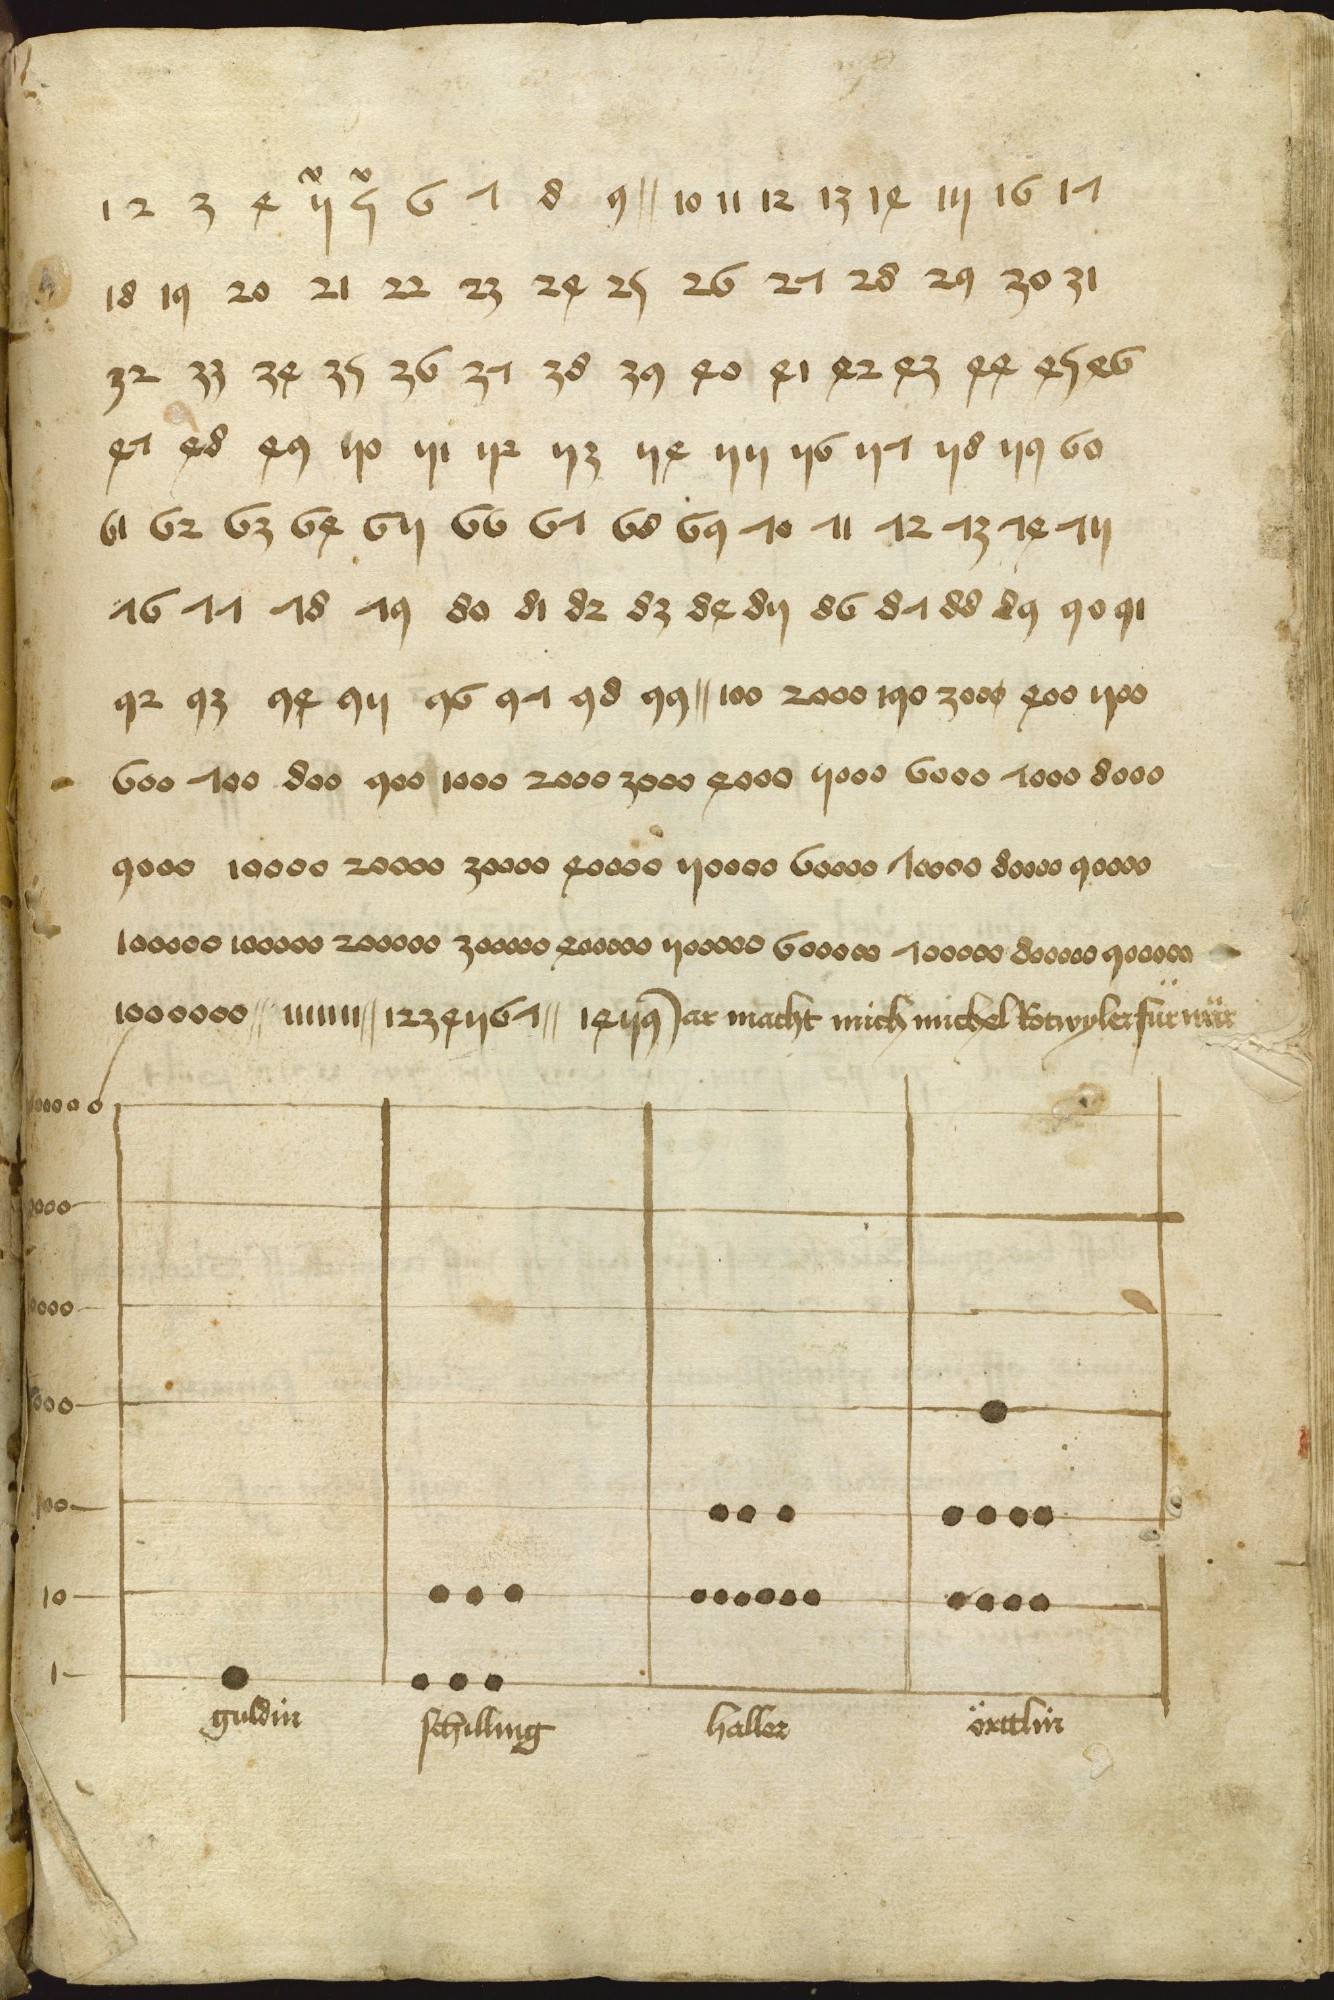 1 2 3 4 5 5 6 7 8 9 // 10 11 12 13 14 15 16 17
18 19 20 21 22 23 24 25 26 27 28 29 30 31
32 33 34 35 36 37 38 39 40 41 42 43 44 45 46
47 48 49 50 51 52 53 54 55 56 57 58 59 60
61 62 63 64 65 66 67 68 69 70 71 72 73 74 75
76 77 78 79 80 81 82 83 84 85 86 87 88 89 90 91
92 93 94 95 96 97 98 99 // 100 2000 190 3000 400 500
600 700 800 900 1000 2000 3000 4000 5000 6000 7000 8000
9000 10000 20000 30000 40000 50000 60000 70000 80000 90000
100000 100000 200000 300000 400000 500000 600000 700000 800000 900000
1000000 // 1111111 // 1234567 // 1459 jar macht mich michel Rotwyler für wär
0000
0000
000
100
10
1
guldin schilling haller örttlin